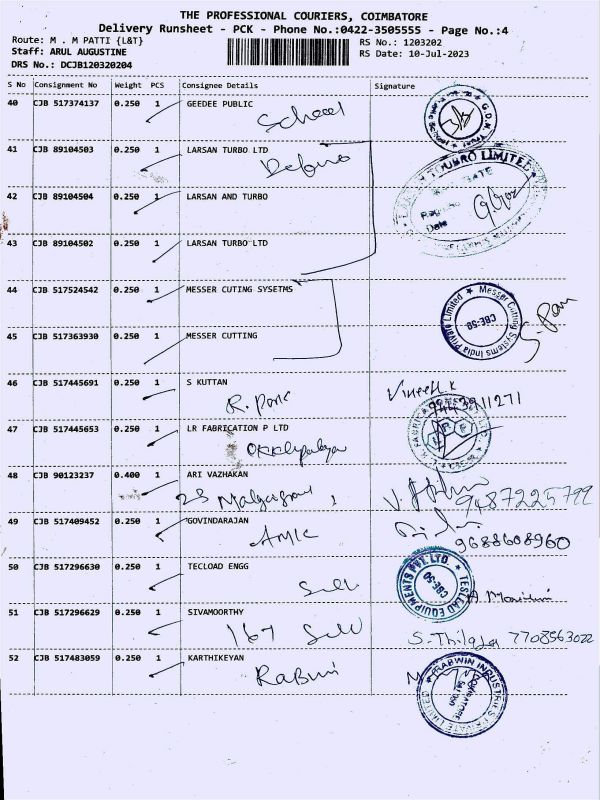 THE PROFESSIONAL COURIERS, COIMBATORE
Delivery Runsheet - PCK - Phone No.:0422-3505555 - Page No.:4
Route: M . M PATTI {L&T}
RS No.: 1203202
Staff: ARUL AUGUSTINE
RS Date: 10-Jul-2023
DRS No.: DCJB120320204
S No Consignment No Weight PCS Consignee Details Signature
40 CJB 517374137 0.250 1 GEEDEE PUBLIC
School
41 CJB 89104503 0.250 1 LARSAN TURBO LTD
TOUBRO LIMITED
GATE
42 CJB 89104504 0.250 1 LARSAN AND TURBO
Date
43 CJB 89104502 0.250 1 LARSAN TURBO LTD
44 CJB 517524542 0.250 1 MESSER CUTING SYSETMS
Messer Cutting Systems India Private Limited
CBE-50
45 CJB 517363930 0.250 1 MESSER CUTTING
46 CJB 517445691 0.250 1 S KUTTAN
Vineeth.k
R. Park
47 CJB 517445653 0.250 1 LR FABRICATION P LTD
48 CJB 90123237 0.400 1 ARI VAZHAKAN
9487225799
49 CJB 517409452 0.250 1 GOVINDARAJAN
9688608960
50 CJB 517296630 0.250 1 TECLOAD ENGG
EQUIPMENTS PVT. LTD.
CBE-50
51 CJB 517296629 0.250 1 SIVAMOORTHY
167
S. Thilaga 7708563022
52 CJB 517483059 0.250 1 KARTHIKEYAN
RABWIN INDUSTRIES PRIVATE LIMITED
COIMBATORE